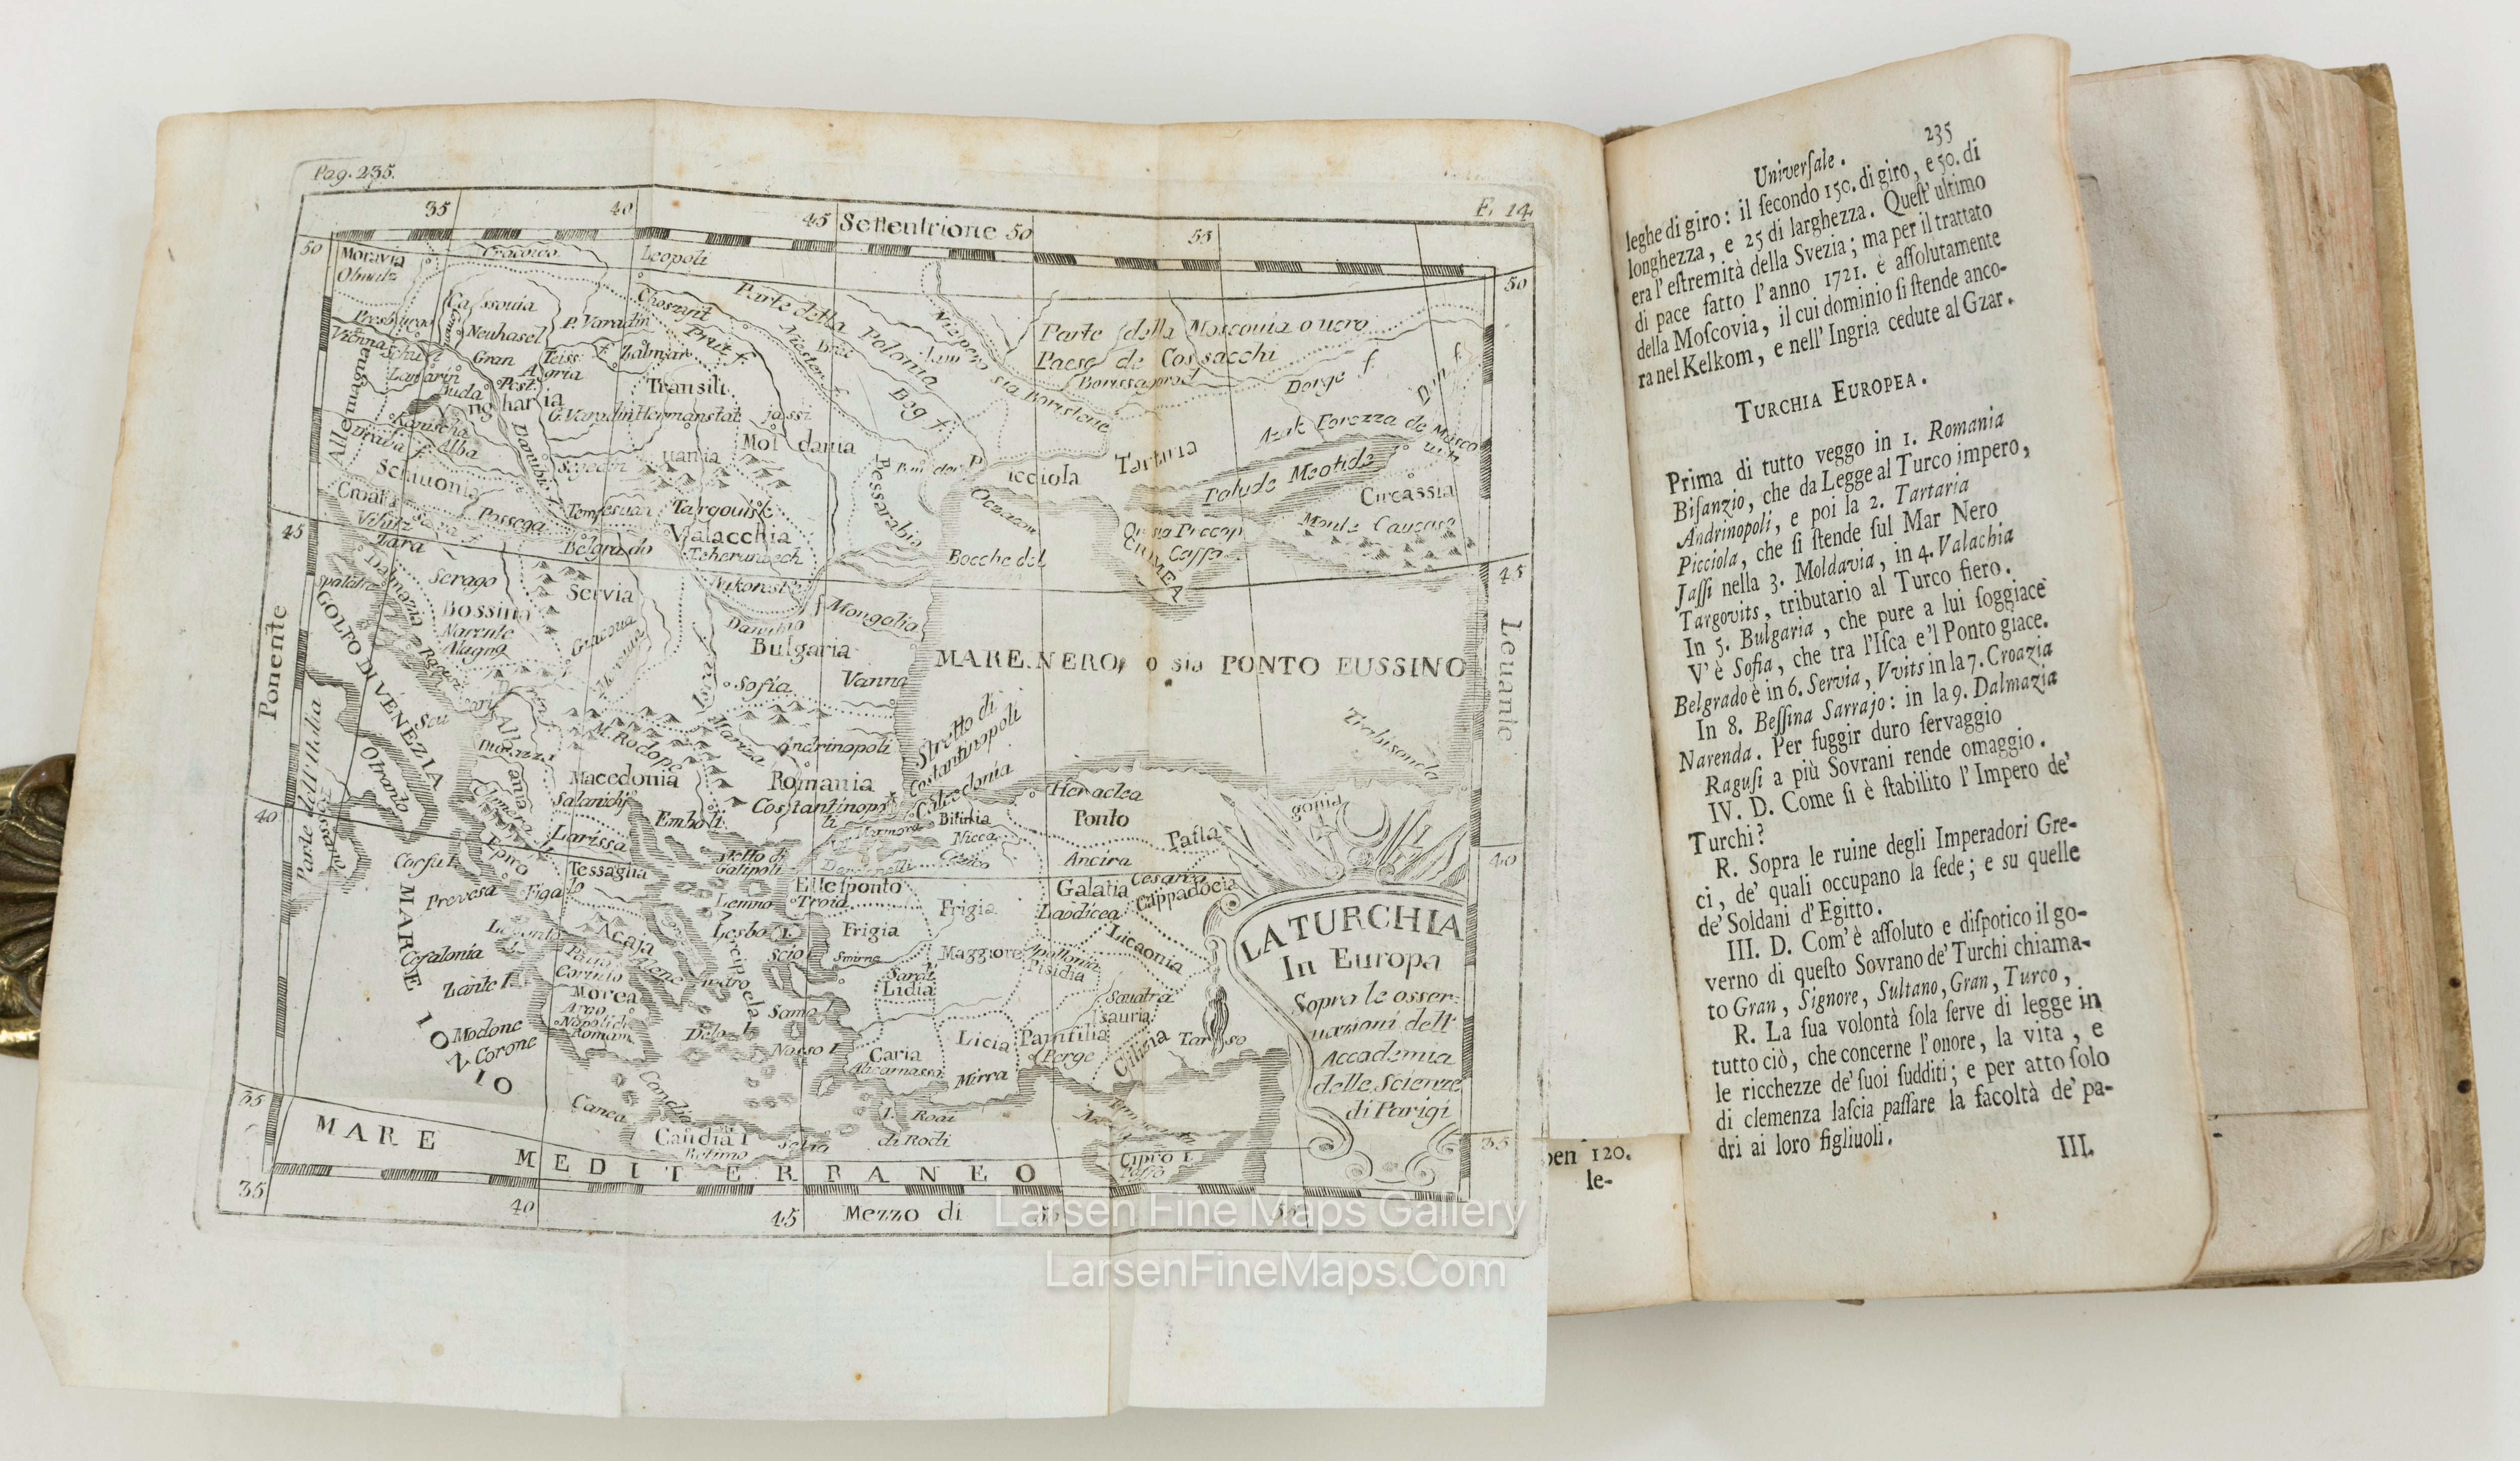 Pag. 235.
F. 14
35
40
45
Settentrione
50
55
50
50
Moravia
Olmutz
Cracovia
Leopoli
Cassouia
Choszyit
Parte della Polonia
Parte della Moscouia ouero
Paese de Cossacchi
Presburgo
Neuhasel
P. Varadin
Prut f.
Niester f.
Niepero sia Boristene
Vienna
Schutt
Gran
Teiss f.
Zatmar
Agria
Pest
Buda
Transili
uania
Bog f.
Dorge f.
Don f.
Allemagna
Ungharia
G. Varadin
Hermanstat
jassi
Moldauia
Kanischa
Alba
Draua f.
Danubio
Segedin
Bessarabia
Picciola Tartaria
Palude Meotide
Circassia
Schiauonia
Croatia
Possega
Temesuar
Targouisk
Oczacow
Monte Caucaso
45
Zara
Belgrado
Valacchia
Bocche del
Caffa
CRIMEA
45
Spalatro
Dalmazia
Serago
Servia
Bossina
Narente
Danubio
Mongalia
Bulgaria
Ponente
GOLFO DI VENEZIA
Ragusi
MARE NERO, o sia PONTO EUSSINO
Leuante
Sofia
Vanna
Scutari
Albania
M. Rodope
Mariza
Andrinopoli
Stretto di
Costantinopoli
Trebisonda
Otranto
Parte dell'Italia
Macedonia
Romania
Costantinopoli
Calcedonia
Heraclea
Ponto
Sinopi
Salanichi
Emboli
Marmora
Bitinia
Nicea
40
40
Corfu I.
Epiro
Larissa
Tessaglia
Stretto di
Galipoli
Dardanelli
Ancira
Ellesponto
Galatia
Cesarea
Cappadocia
Prevesa
Figalo
Lemno
Troia
Frigia
Laodicea
MARE IONIO
Lepanto
Acaja
Lesbo I.
Frigia
Maggiore
Licaonia
Cefalonia
Corinto
Scio
Smirne
Apollonia
Pisidia
Zante I.
Morea
Sardi
Lidia
Samo
Modone
Corone
Delo I.
Nasso I.
Caria
Alicarnasso
Licia
Panfilia
Perge
Cilicia
Tarso
Mirra
35
Canea
Candia
Candia I.
Retimo
I. Rodi
di Rodi
Cipro I.
35
MARE MEDITERRANEO
35
40
45
Mezzo di
LA TURCHIA
In Europa
Sopra le osser-
uazioni dell'
Accademia
delle Scienze
di Parigi
Larsen Fine Maps Gallery
LarsenFineMaps.Com
pen 120.
le-
Univerſale.
235
leghe di giro: il ſecondo 150. di giro, e 50. di
longhezza, e 25 di larghezza. Queſt' ultimo
era l'eſtremità della Svezia; ma per il trattato
di pace fatto l'anno 1721. è aſſolutamente
della Moſcovia, il cui dominio ſi ſtende anco-
ra nel Kelkom, e nell' Ingria cedute al Gzar.
TURCHIA EUROPEA.
Prima di tutto veggo in 1. Romania
Biſanzio, che da Legge al Turco impero,
Andrinopoli, e poi la 2. Tartaria
Picciola, che ſi ſtende ſul Mar Nero
Jaſſi nella 3. Moldavia, in 4. Valachia
Targovits, tributario al Turco fiero.
In 5. Bulgaria, che pure a lui ſoggiace
V'è Sofia, che tra l'Iſca e 'l Ponto giace.
Belgrado è in 6. Servia, Vvits in la 7. Croazia
In 8. Beſſina Sarrajo: in la 9. Dalmazia
Narenda. Per fuggir duro ſervaggio
Raguſi a più Sovrani rende omaggio.
IV. D. Come ſi è ſtabilito l' Impero de'
Turchi?
R. Sopra le ruine degli Imperadori Gre-
ci, de' quali occupano la ſede; e su quelle
de' Soldani d'Egitto.
III. D. Com'è aſſoluto e diſpotico il go-
verno di queſto Sovrano de' Turchi chiama-
to Gran, Signore, Sultano, Gran, Turco,
R. La ſua volontà ſola ſerve di legge in
tutto ciò, che concerne l'onore, la vita, e
le ricchezze de' ſuoi ſudditi; e per atto ſolo
di clemenza laſcia paſſare la facoltà de' pa-
dri ai loro figliuoli.
III.